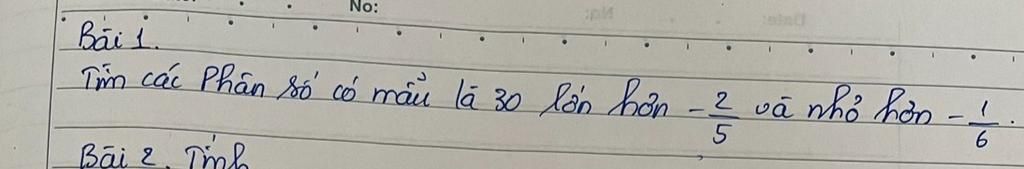 No:
Bài 1.
Tìm các Phân số có mẫu là 30 lớn hơn -2/5 và nhỏ hơn -1/6.
Bài 2. Tính